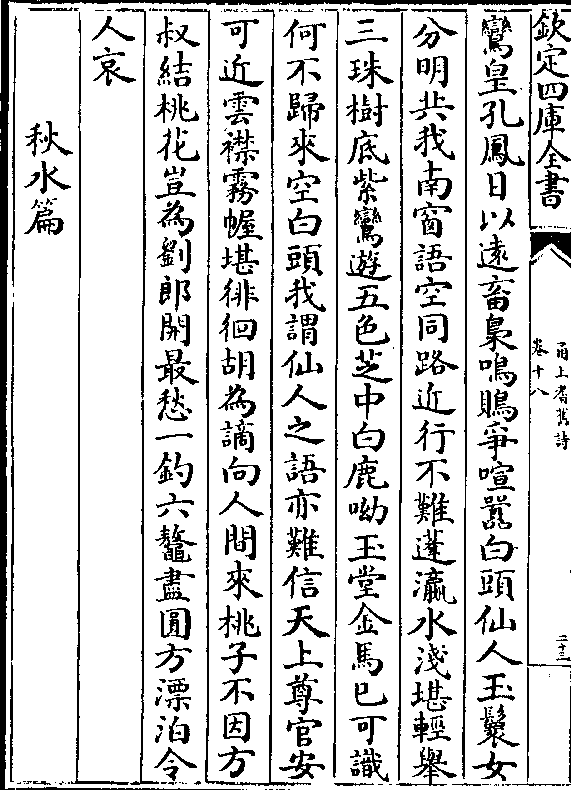 欽定四庫全書
甬上耆舊詩
卷十八
二十三
鸞皇孔鳳日以遠畜梟鳴鵰爭喧嚣白頭仙人玉鬟女
分明共我南窗語空同路近行不難蓬瀛水淺堪輕舉
三珠樹底紫鸞遊五色芝中白鹿呦玉堂金馬已可識
何不歸來空白頭我謂仙人之語亦難信天上尊官安
可近雲襟霧幄堪徘徊胡為謫向人間來桃子不因方
叔結桃花豈為劉郎開最愁一釣六鼇盡圓方漂泊令
人哀
秋水篇